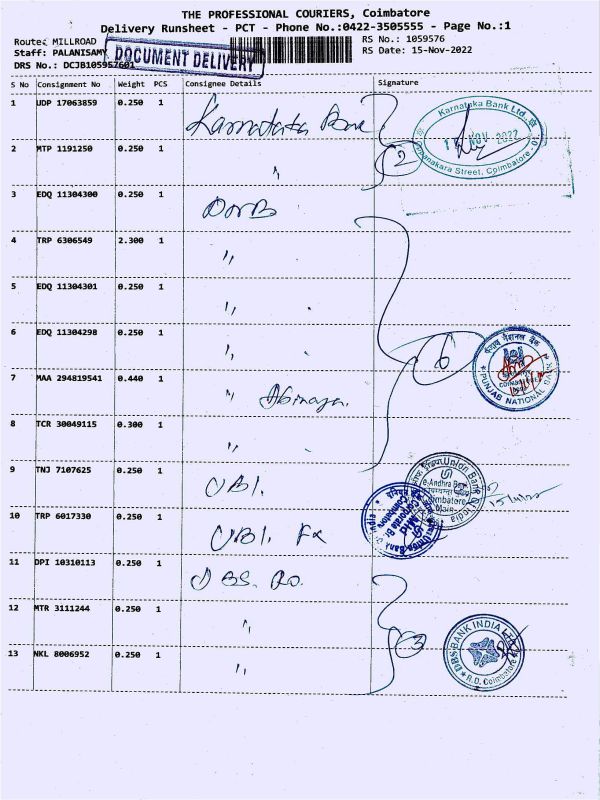 THE PROFESSIONAL COURIERS, Coimbatore
Delivery Runsheet - PCT - Phone No.:0422-3505555 - Page No.:1
Route: MILLROAD
RS No.: 1059576
Staff: PALANISAMY
DOCUMENT DELIVERY
RS Date: 15-Nov-2022
DRS No.: DCJB105957601
S No Consignment No Weight PCS Consignee Details Signature
1 UDP 17063859 0.250 1 Karnataka Bank
Karnataka Bank Ltd.
NOV 2022
Street, Coimbatore - 01
2 MTP 1191250 0.250 1 " 2
3 EDQ 11304300 0.250 1
4 TRP 6306549 2.300 1 "
5 EDQ 11304301 0.250 1 "
6 EDQ 11304298 0.250 1 " 6
पंजाब नैशनल बैंक
PUNJAB NATIONAL BANK
7 MAA 294819541 0.440 1 " Abinaya.
8 TCR 30049115 0.300 1 "
9 TNJ 7107625 0.250 1 UBI.
Union Bank of India
e-Andhra Bank
Coimbatore
Main
10 TRP 6017330 0.250 1 UBI. Fx
Union Bank of India
Corporate Br
Coimbatore
11 DPI 10310113 0.250 1 DBS. RO.
12 MTR 3111244 0.250 1 "
13 NKL 8006952 0.250 1 " 3
DBS BANK INDIA LTD
R.D. Coimbatore